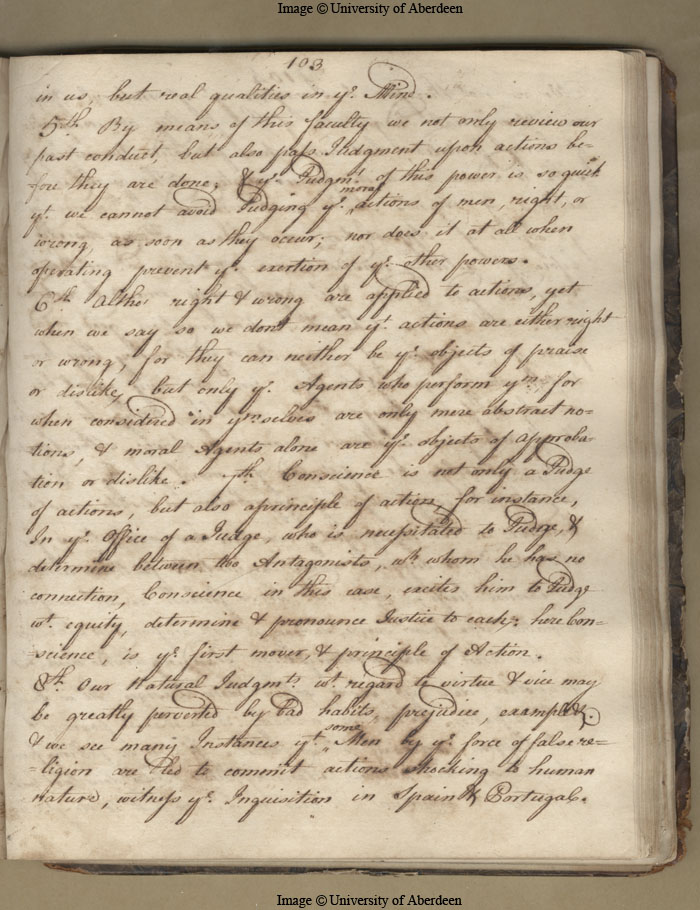 Image © University of Aberdeen
103
in us, but real qualities in ye. Mind.
5th. By means of this faculty we not only review our
past conduct, but also pass Judgment upon actions be=
fore they are done; & ye. Judgmt. of this power is so quick
yt. we cannot avoid Judging ye. moral actions of men, right, or
wrong, as soon as they occur; nor does it at all when
operating prevent ye. exertion of ye. other powers.
6th. Altho' right & wrong are applied to actions, yet
when we say so we dont mean yt. actions are either right
or wrong, for they can neither be ye. objects of praise
or dislike, but only ye. Agents who perform ym. for
when considered in ymselves are only mere abstract no=
tions, & moral Agents alone are ye. objects of approba=
tion or dislike. 7th. Conscience is not only a Judge
of actions, but also a principle of action, for instance,
In ye. Office of a Judge, who is necessitated to Judge, &
determine between two Antagonists, wt. whom he has no
connection, Conscience in this case, excites him to Judge
wt. equity, determine & pronounce Justice to each; here Con=
science, is ye. first mover, & principle of Action.
8th. Our Natural Judgmts. wt. regard to virtue & vice may
be greatly perverted by bad habits, prejudice, example &c.
& we see many Instances yt. some Men by ye. force of false re=
=ligion are led to commit actions shocking to human
nature, witness ye. Inquisition in Spain & Portugal.
Image © University of Aberdeen